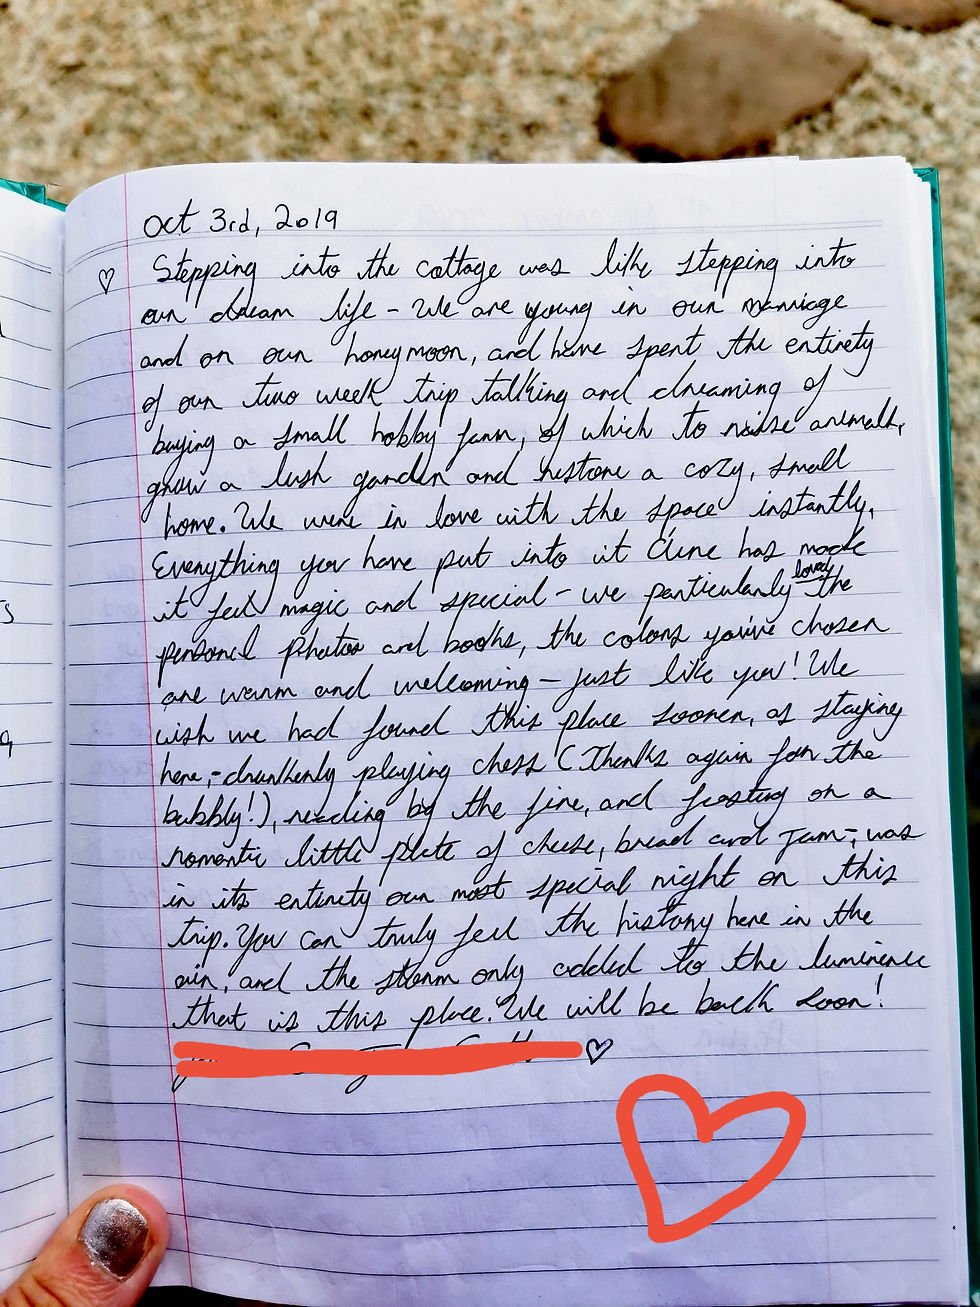 oct 3rd, 2019
♡ Stepping into the cottage was like stepping into
our dream life - We are young in our marriage
and on our honeymoon, and have spent the entirety
of our two week trip talking and dreaming of
buying a small hobby farm, of which to raise animals,
grow a lush garden and restore a cozy, small
home. We were in love with the space instantly,
Everything you have put into it Clune has made
it feel magic and special - we particularly lovely the
personal photos and books, the colors you've chosen
are warm and welcoming - just like you! We
wish we had found this place sooner, as staying
here,- drunkenly playing chess (Thanks again for the
bubbly!), reading by the fire, and feasting on a
romantic little plate of cheese, bread and jam,- was
in its entirety our most special night on this
trip. You can truly feel the history here in the
air, and the storm only added to the luminence
that is this place. We will be back soon!
♡